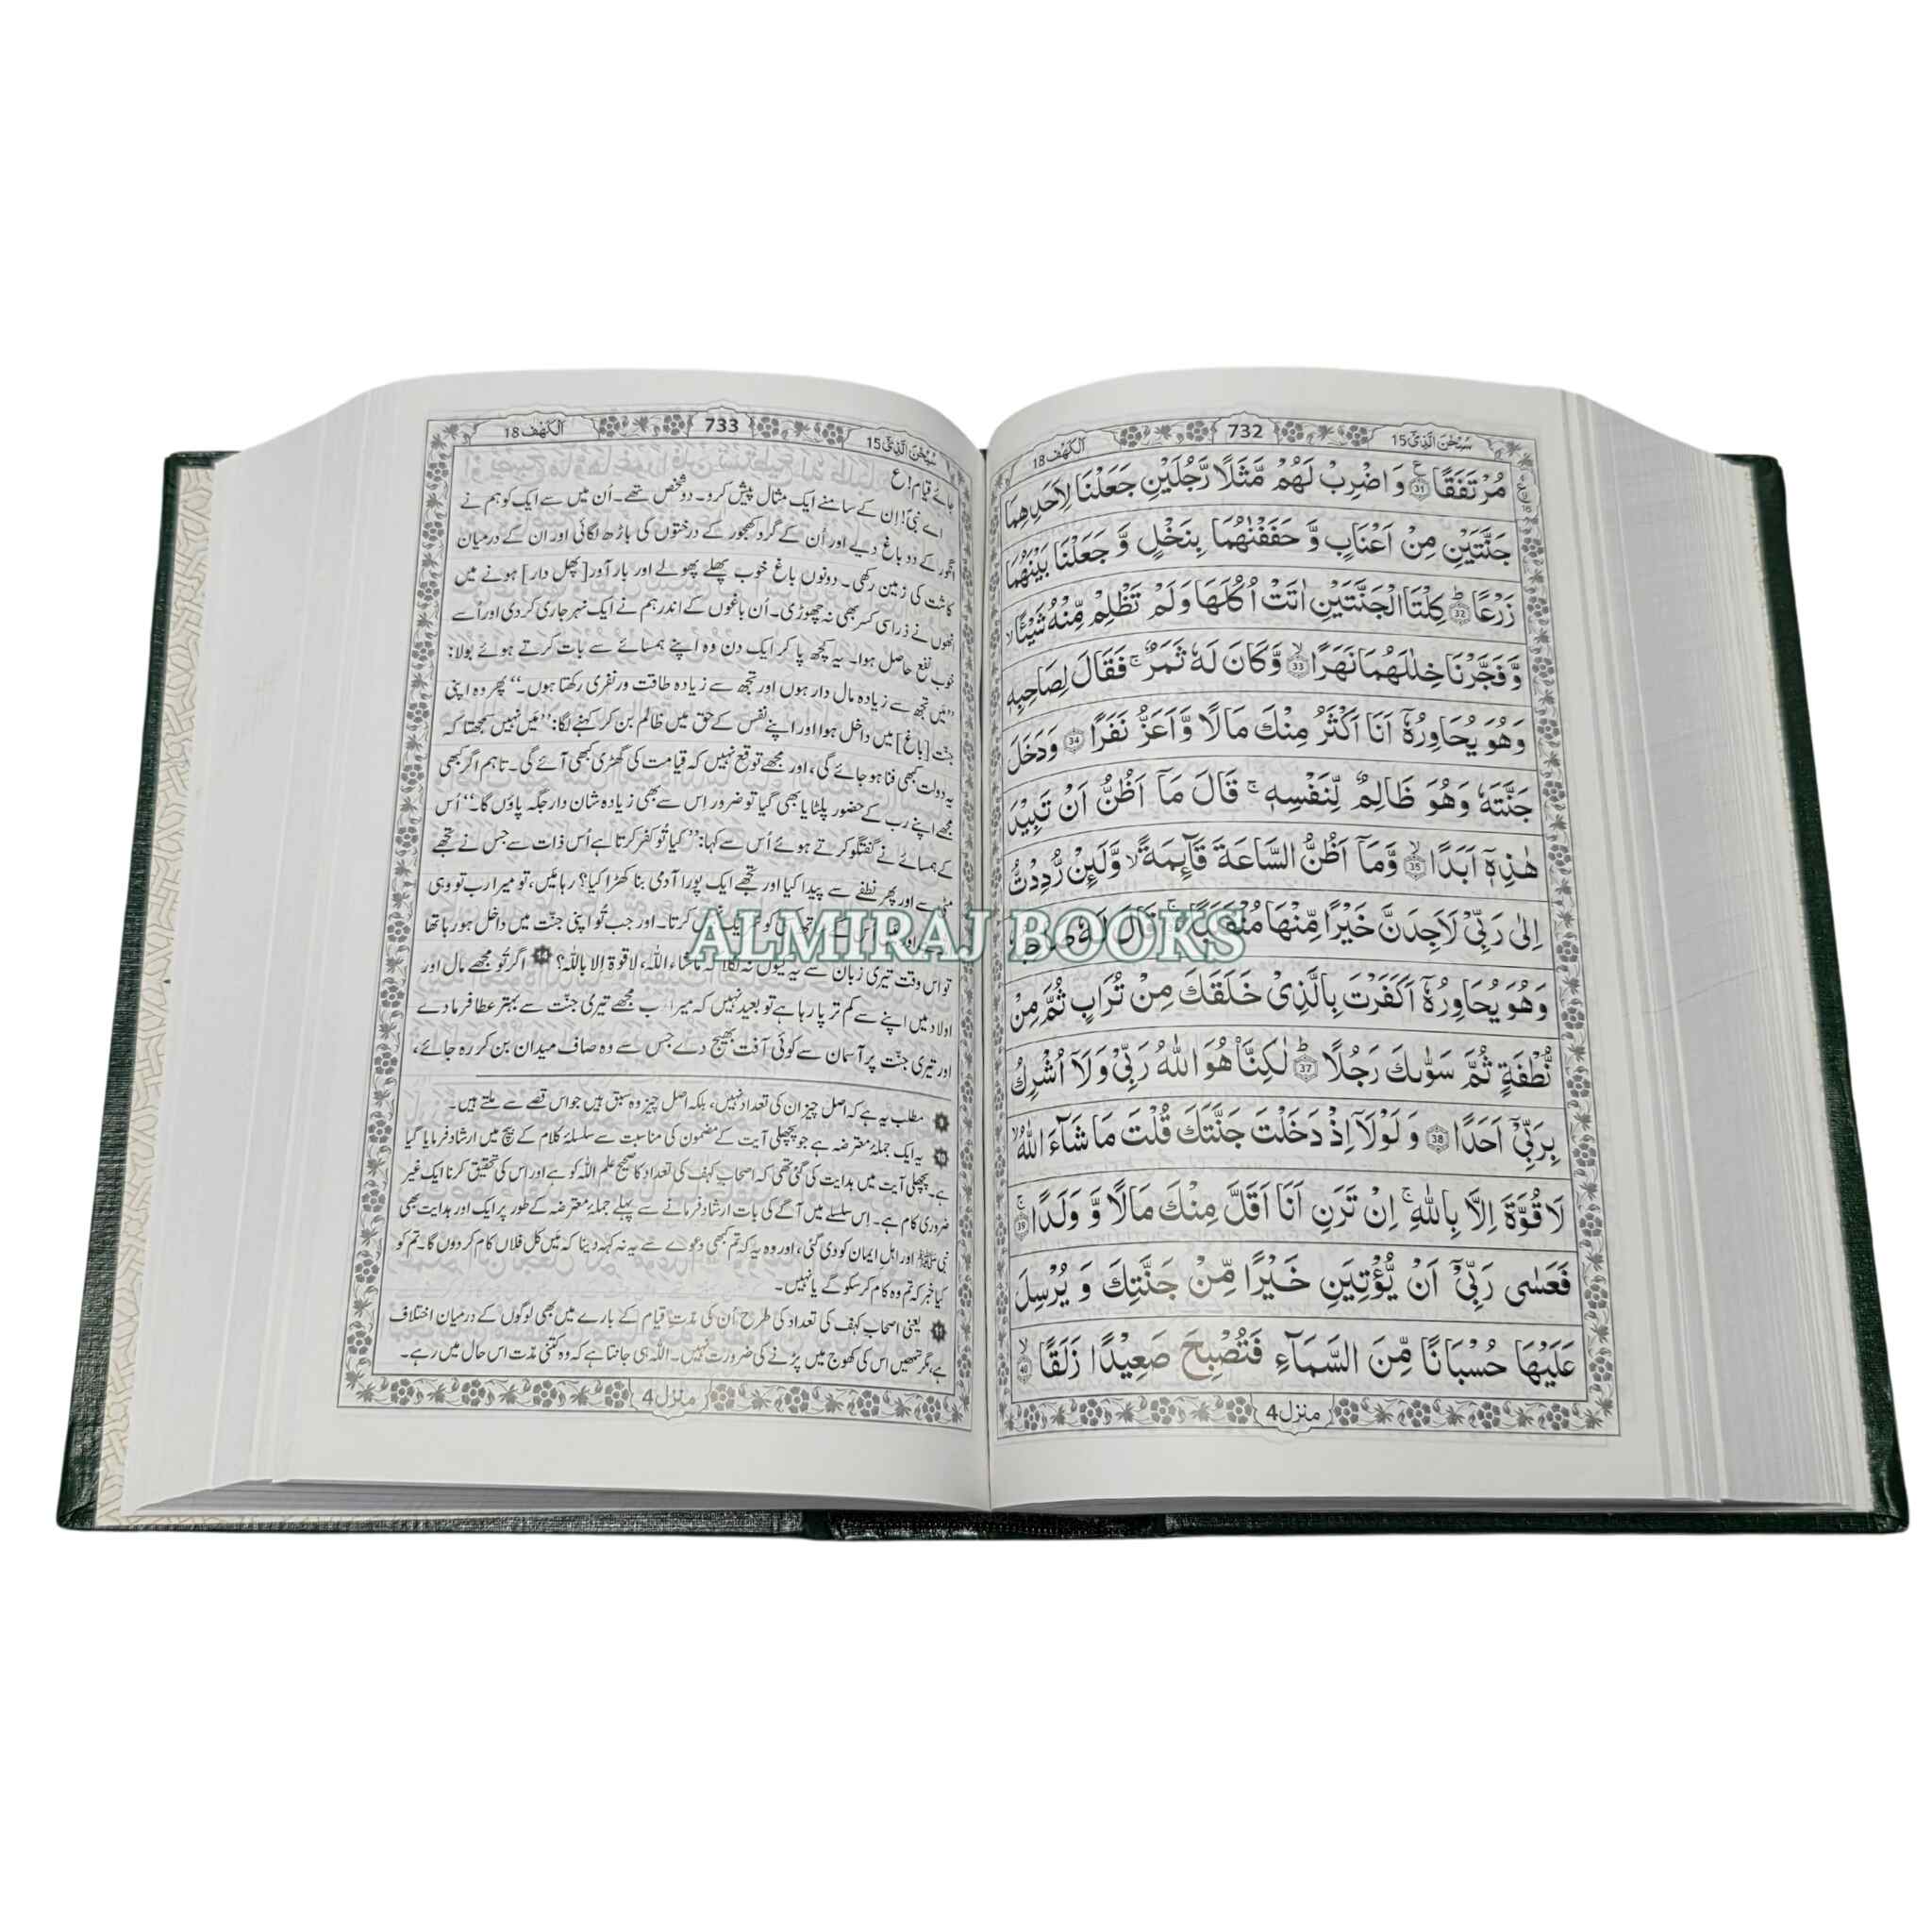 سُبْحٰنَ الَّذِيْٓ 15
732
اَلْكَهْف 18
مُرْتَفَقًا ﴿31﴾ وَاضْرِبْ لَهُمْ مَّثَلًا رَّجُلَيْنِ جَعَلْنَا لِاَحَدِهِمَا
جَنَّتَيْنِ مِنْ اَعْنَابٍ وَّ حَفَفْنٰهُمَا بِنَخْلٍ وَّ جَعَلْنَا بَيْنَهُمَا
زَرْعًا ﴿32﴾ كِلْتَا الْجَنَّتَيْنِ اٰتَتْ اُكُلَهَا وَلَمْ تَظْلِمْ مِّنْهُ شَيْـًٔا
وَّفَجَّرْنَا خِلٰلَهُمَا نَهَرًا ﴿33﴾ وَّكَانَ لَهٗ ثَمَرٌ ۚ فَقَالَ لِصَاحِبِهٖ
وَهُوَ يُحَاوِرُهٗٓ اَنَا اَكْثَرُ مِنْكَ مَالًا وَّاَعَزُّ نَفَرًا ﴿34﴾ وَدَخَلَ
جَنَّتَهٗ وَهُوَ ظَالِمٌ لِّنَفْسِهٖ ۚ قَالَ مَآ اَظُنُّ اَنْ تَبِيْدَ
هٰذِهٖٓ اَبَدًا ﴿35﴾ وَّمَآ اَظُنُّ السَّاعَةَ قَآئِمَةً ۙ وَّلَئِنْ رُّدِدْتُّ
اِلٰى رَبِّيْ لَاَجِدَنَّ خَيْرًا مِّنْهَا مُنْقَلَبًا قَالَ لَهٗ
وَهُوَ يُحَاوِرُهٗٓ اَكَفَرْتَ بِالَّذِيْ خَلَقَكَ مِنْ تُرَابٍ ثُمَّ مِنْ
نُّطْفَةٍ ثُمَّ سَوّٰىكَ رَجُلًا ﴿37﴾ لٰكِنَّا۠ هُوَ اللّٰهُ رَبِّيْ وَلَآ اُشْرِكُ
بِرَبِّيْٓ اَحَدًا ﴿38﴾ وَلَوْلَآ اِذْ دَخَلْتَ جَنَّتَكَ قُلْتَ مَا شَآءَ اللّٰهُ ۙ
لَا قُوَّةَ اِلَّا بِاللّٰهِ ۚ اِنْ تَرَنِ اَنَا اَقَلَّ مِنْكَ مَالًا وَّ وَلَدًا ﴿39﴾
فَعَسٰى رَبِّيْٓ اَنْ يُّؤْتِيَنِ خَيْرًا مِّنْ جَنَّتِكَ وَ يُرْسِلَ
عَلَيْهَا حُسْبَانًا مِّنَ السَّمَآءِ فَتُصْبِحَ صَعِيْدًا زَلَقًا ﴿40﴾
منزل 4
سُبْحٰنَ الَّذِيْٓ 15
733
اَلْكَهْف 18
جائے قیام! ع
اے نبیؐ! اِن کے سامنے ایک مثال پیش کرو۔ دو شخص تھے۔ اُن میں سے ایک کو ہم نے
انگور کے دو باغ دیے اور اُن کے گرد کھجور کے درختوں کی باڑھ لگائی اور ان کے درمیان
کاشت کی زمین رکھی۔ دونوں باغ خوب پھلے پھولے اور بار آور [پھل دار] ہونے میں
انھوں نے ذرا سی کسر بھی نہ چھوڑی۔ اُن باغوں کے اندر ہم نے ایک نہر جاری کر دی اور اُسے
خوب نفع حاصل ہوا۔ یہ کچھ پا کر ایک دن وہ اپنے ہمسائے سے بات کرتے ہوئے بولا:
”میں تجھ سے زیادہ مال دار ہوں اور تجھ سے زیادہ طاقت ور نفری رکھتا ہوں۔“ پھر وہ اپنی
جنّت [باغ] میں داخل ہوا اور اپنے نفس کے حق میں ظالم بن کر کہنے لگا: ”مَیں نہیں سمجھتا کہ
یہ دولت کبھی فنا ہو جائے گی، اور مجھے توقع نہیں کہ قیامت کی گھڑی کبھی آئے گی۔ تاہم اگر کبھی
مجھے اپنے رب کے حضور پلٹایا بھی گیا تو ضرور اِس سے بھی زیادہ شان دار جگہ پاؤں گا۔“ اُس
کے ہمسائے نے گفتگو کرتے ہوئے اُس سے کہا: ”کیا تُو کفر کرتا ہے اُس ذات سے جس نے تجھے
مٹی سے اور پھر نطفے سے پیدا کیا اور تجھے ایک پورا آدمی بنا کھڑا کیا؟ رہا مَیں، تو میرا رب تو وہی
کرتا۔ اور جب تُو اپنی جنّت میں داخل ہو رہا تھا
تو اس وقت تیری زبان سے یہ کیوں نہ نکلا کہ ماشاء اللّٰہ، لا قوۃ الا باللّٰہ؟ اگر تُو مجھے مال اور
اولاد میں اپنے سے کم تر پا رہا ہے تو بعید نہیں کہ میرا رب مجھے تیری جنّت سے بہتر عطا فرما دے
اور تیری جنّت پر آسمان سے کوئی آفت بھیج دے جس سے وہ صاف میدان بن کر رہ جائے،
مطلب یہ ہے کہ اصل چیز ان کی تعداد نہیں، بلکہ اصل چیز وہ سبق ہیں جو اس قصے سے ملتے ہیں۔
یہ ایک جملۂ معترضہ ہے جو پچھلی آیت کے مضمون کی مناسبت سے سلسلۂ کلام کے بیچ میں ارشاد فرمایا گیا
ہے۔ پچھلی آیت میں ہدایت کی گئی تھی کہ اصحابِ کہف کی تعداد کا صحیح علم اللّٰہ کو ہے اور اس کی تحقیق کرنا ایک غیر
ضروری کام ہے۔ اِس سلسلے میں آگے کی بات ارشاد فرمانے سے پہلے جملۂ معترضہ کے طور پر ایک اور ہدایت بھی
نبی ﷺ اور اہلِ ایمان کو دی گئی، اور وہ یہ کہ تم کبھی دعوے سے یہ نہ کہہ دینا کہ مَیں کل فلاں کام کر دوں گا۔ تم کو
کیا خبر کہ تم وہ کام کر سکو گے یا نہیں۔
یعنی اصحابِ کہف کی تعداد کی طرح اُن کی مدّتِ قیام کے بارے میں بھی لوگوں کے درمیان اختلاف
ہے، مگر تمھیں اس کی کھوج میں پڑنے کی ضرورت نہیں۔ اللّٰہ ہی جانتا ہے کہ وہ کتنی مدّت اس حال میں رہے۔
منزل 4
ALMIRAJ BOOKS